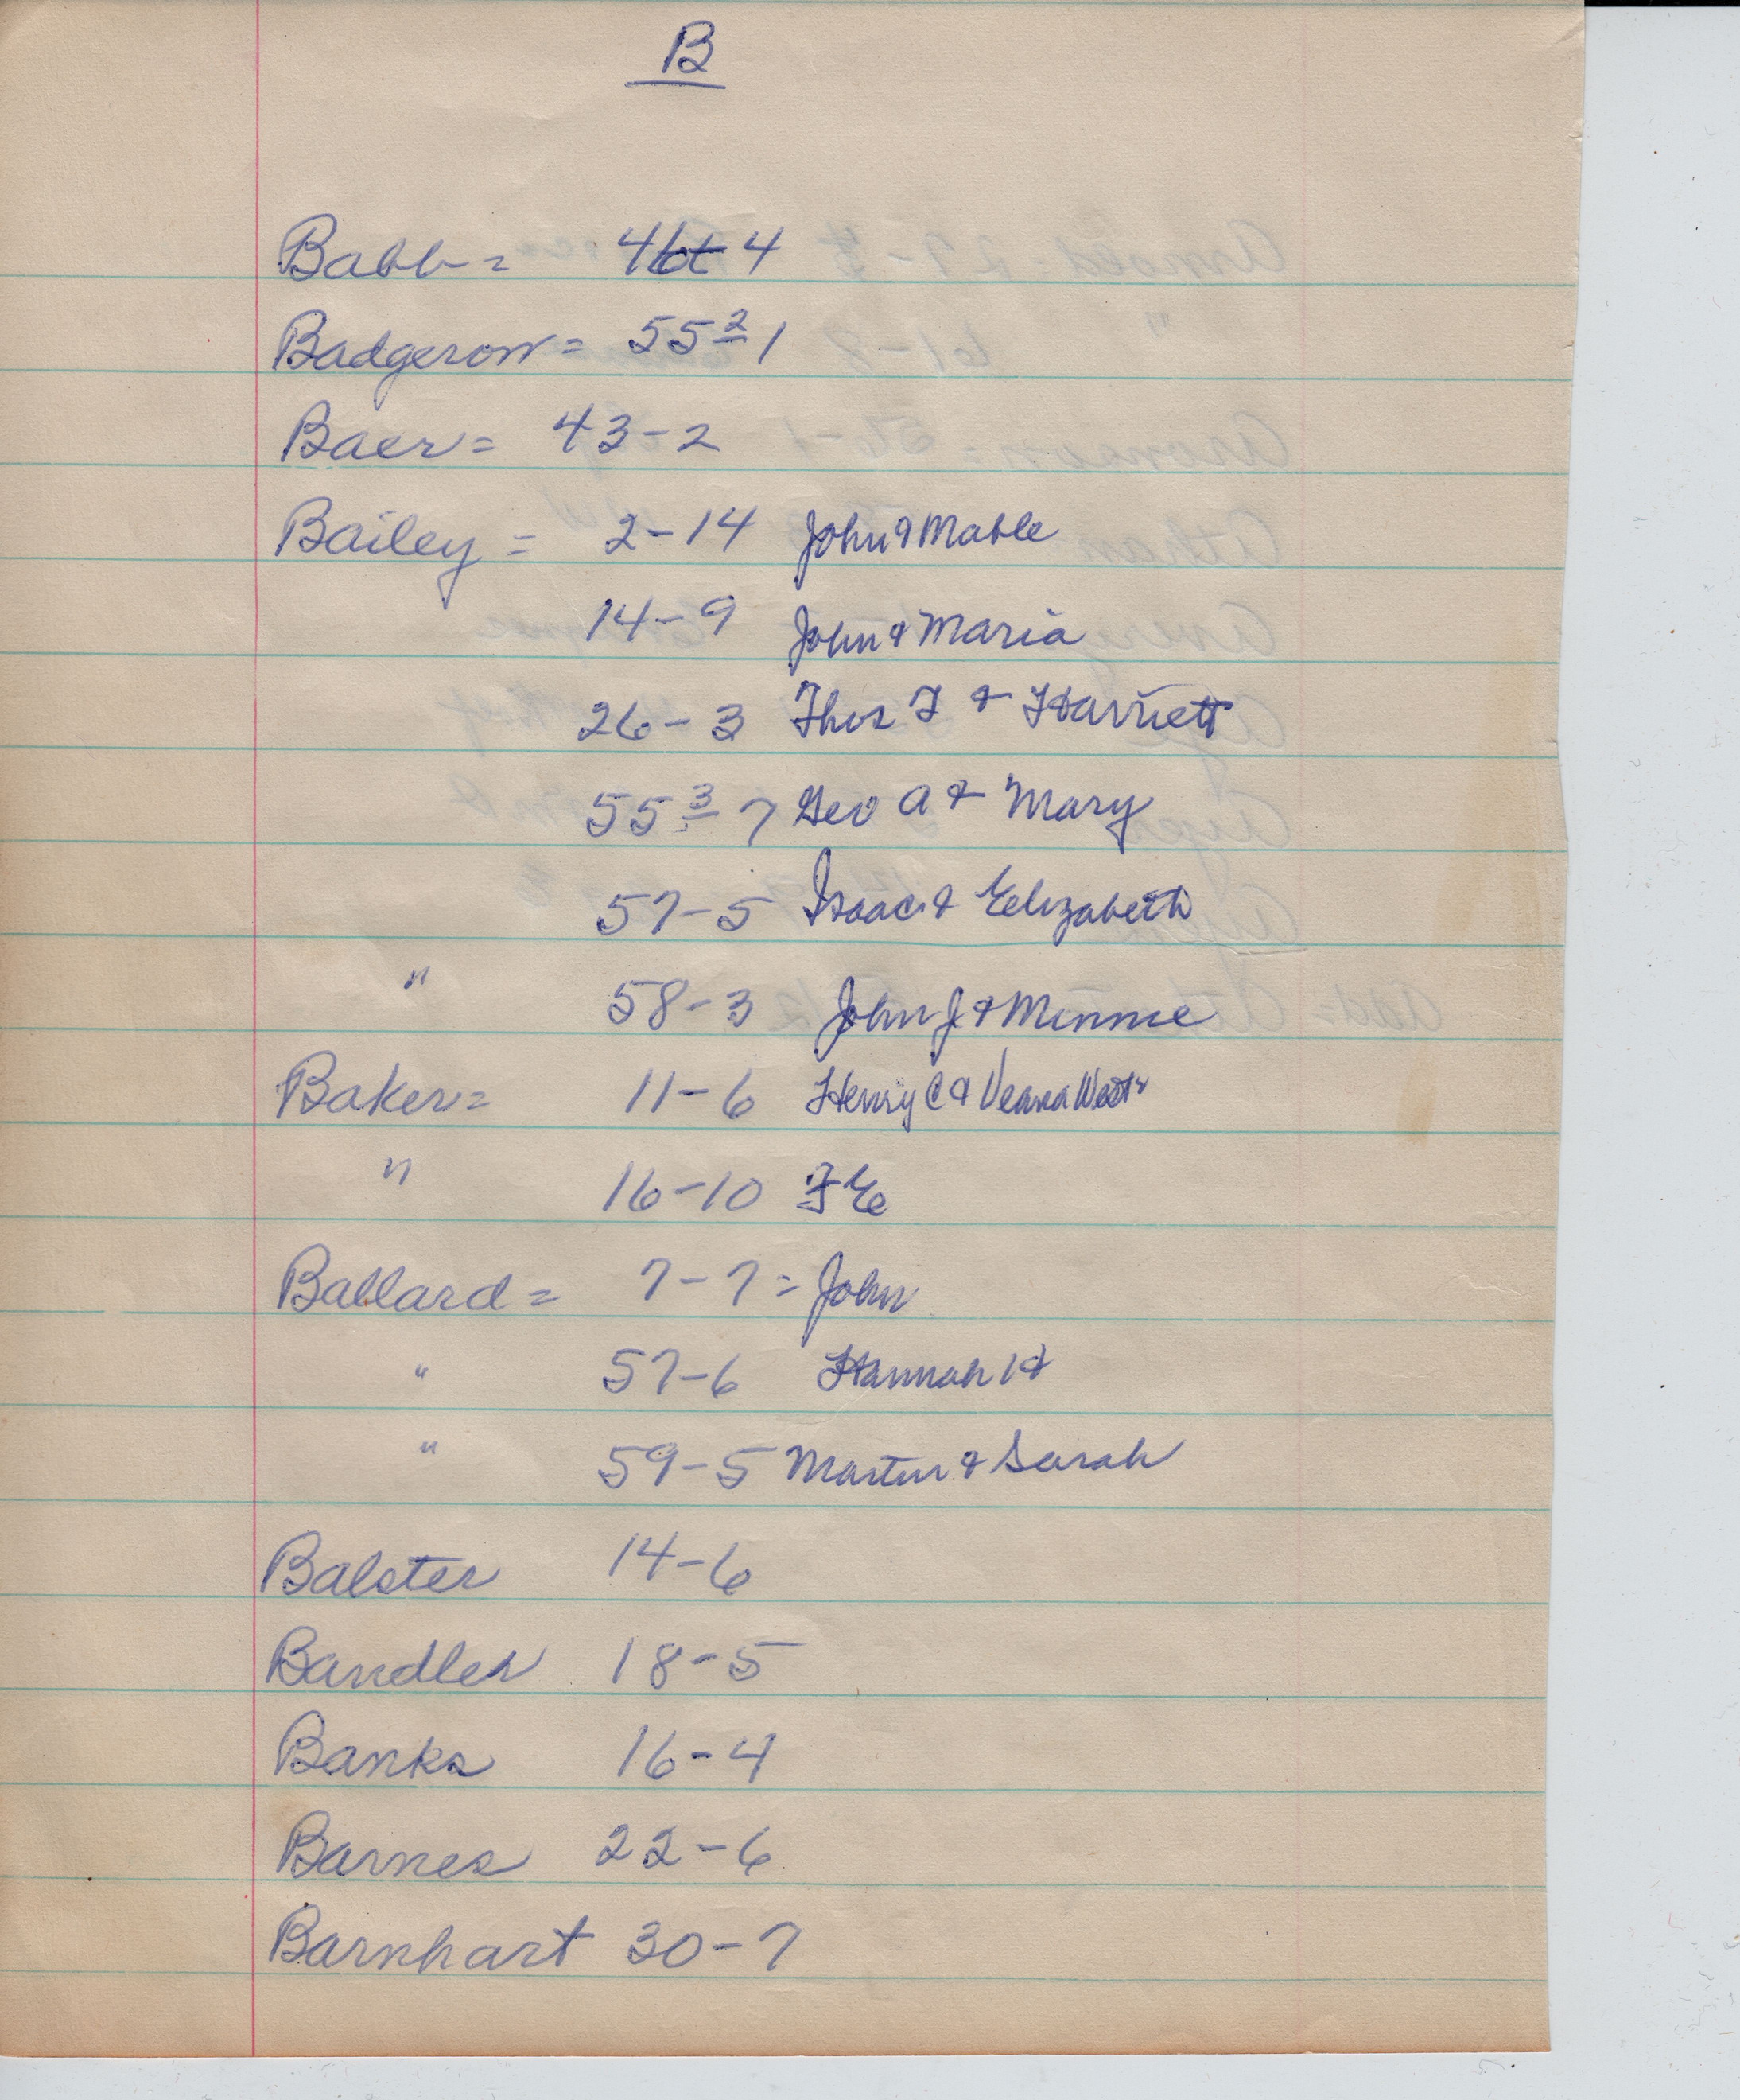 B
Babb = 4 lot 4
Badgerow = 55 2 1
Baer = 43-2
Bailey = 2-14 John & Mable
14-9 John & Maria
26-3 Thos F & Harriett
55 3 7 Geo A & Mary
57-5 Isaac & Elizabeth
" 58-3 John J & Minnie
Baker = 11-6 Henry C &
" 16-10 F E
Ballard = 7-7 = John
" 57-6 Hannah H
" 59-5 Martin & Sarah
Balster 14-6
Bandler 18-5
Banks 16-4
Barnes 22-6
Barnhart 30-7